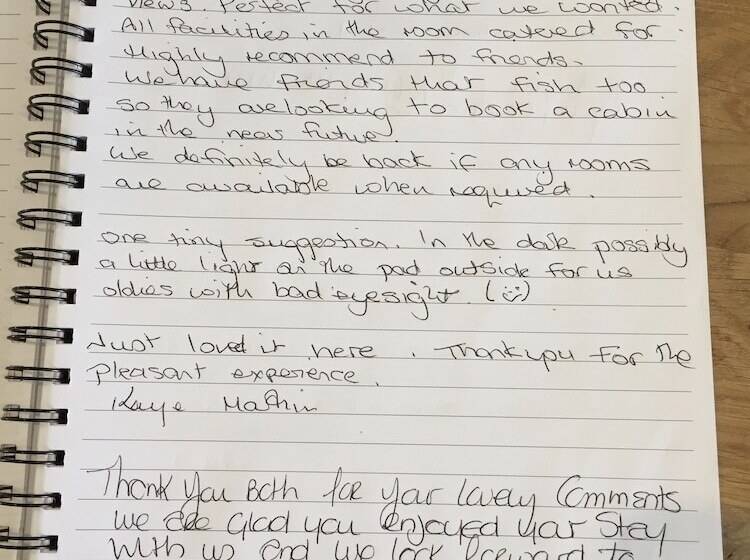 views. Perfect for what we wanted.
All facilities in the room catered for.
Highly recommend to friends.
We have friends that fish too
so they are looking to book a cabin
in the near future.
We definitely be back if any rooms
are available when required.
One tiny suggestion. In the dark possibly
a little light on the pad outside for us
oldies with bad eyesight. (☺)
Just loved it here. Thankyou for the
pleasant experience.
Kaye
Thank You Both for your lovely Comments
we are Glad you enjoyed your Stay
with us and we look forward to